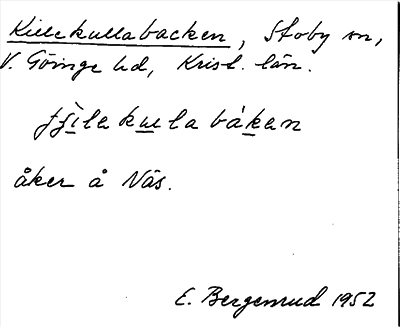 Killekullabacken, Stoby sn,
V. Göinge hd, Krist. län.
fʃìlekulabákan
åker å Näs.
E. Bergenrud 1952